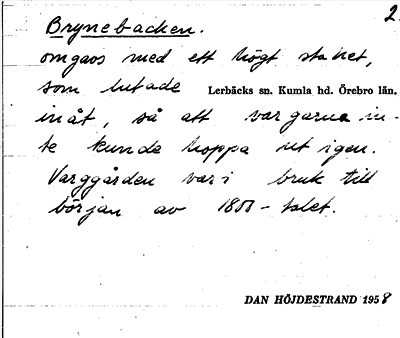 2.
Brynebacken.
omgavs med ett högt staket,
som lutade Lerbäcks sn. Kumla hd. Örebro län.
inåt, så att vargarna in-
te kunde hoppa ut igen.
Varggården var i bruk till
början av 1800-talet.
DAN HÖJDESTRAND 1958